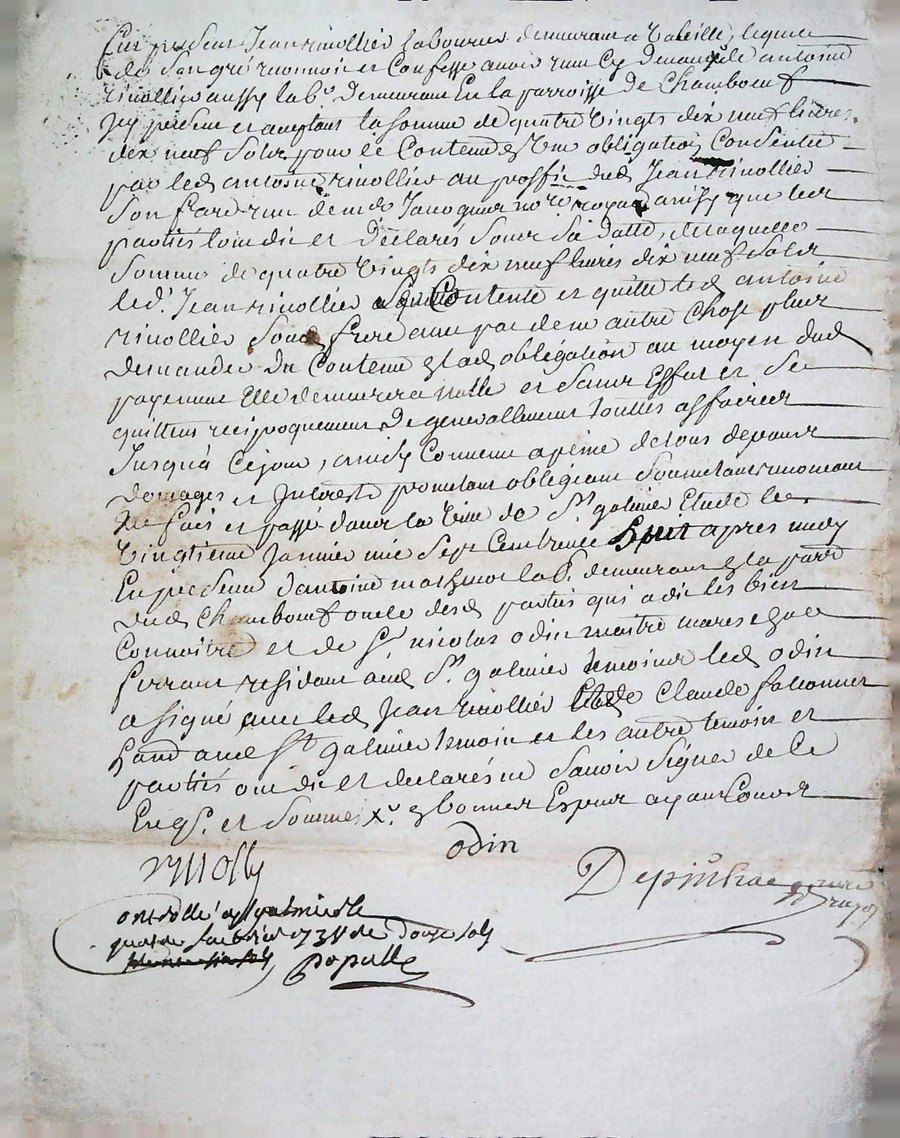 fut present Jean rivollier laboureur demeurant a Valeille, lequel
de son gré reconnoit et Confesse avoir reçu Cy devant de antoine
rivollier aussy lab.r demeurant En la parroisse de Chambœuf
icy present et acceptant la somme de quatre vingts dix neuf livres
dix neuf sols pour le Contenu En une obligation Consentie
par led antoine rivollier au proffit dud Jean rivollier
son frere reçue no.re royal ainsy que les
parties l'ont dit et declarés Sa datte, de laquelle
somme de quatre vingts dix neuf livres dix neuf sols
led. Jean rivollier Contente et quitte led antoine
rivollier Soud frere avec pac de ne autre Chose plus
demander du Contenu En lad obligation au moyen dud
payement Elle demeurera nulle et sans Effet et se
quittent reciproquement De generallement touttes affaires
Jusqua Cejour, ainsy Convenu a peine de tous depans
domages et Interests promettant obligeant Soumettant renonceant
fait et passé dans la Ville de St galmier Etude le
Vingtieme Janvier mil Sept Cent trente après midy
En presence d'antoine lab. demeurant En la parr
dud Chambœuf oncle desd parties qui a dit les bien
Connoitre et de Sr nicolas odin maitre mareschal
ferrant residant aud St galmier temoins led odin
a signé avec led Jean rivollier Claude
aud St galmier temoin et les autre temoin et
parties ont dit et declarés ne Savoir Signer de Ce
Enqs. et Sommes
odin
royal
Controllé a St galmier le
quatre 173 de Douze sols